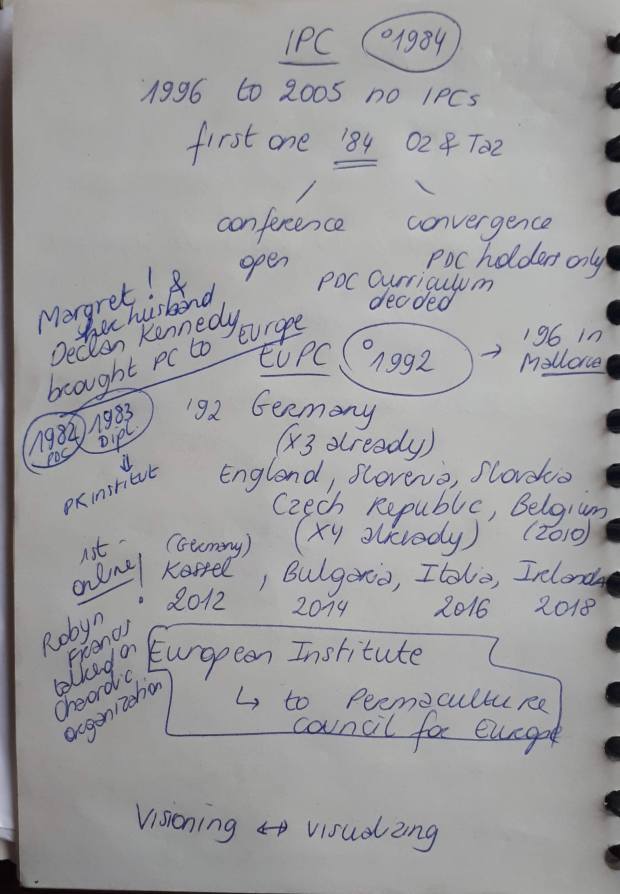 IPC °1984
1996 to 2005 no IPCs
first one '84 Oz & Taz
conference convergence
open PDC holders only
PDC curriculum
decided
Margret! &
her husband
Declan Kennedy
brought PC to Europe
EUPC °1992 → '96 in
Mallorca
1982 1983
PDC Dipl.
⇓
PK institut
'92 Germany
(x3 already)
England, Slovenia, Slovakia
Czech Republic, Belgium
(x4 already) (2010)
1st
online!
(Germany)
Kassel, Bulgaria, Italia, Irelanda
2012 2014 2016 2018
Robyn
Francis
talked on
chaordic
organization
European Institute
↳ to Permaculture
council for Europe
Visioning ↔ visualizing